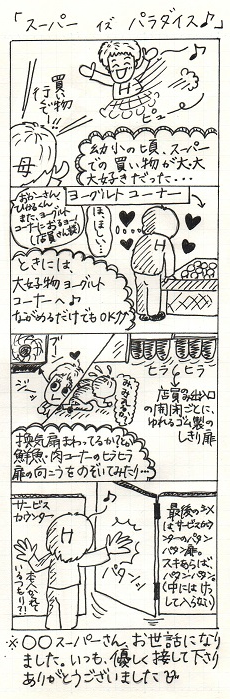 「スーパー イズ パラダイス♪」
買い物
行くで〜!
母
ピュー
幼小の頃、スーパー
での買い物が大、大
大好きだった…
ヨーグルトコーナー
おかーさん、
ひでるくん、
また、ヨーグルト
コーナーにおるヨー!
(店員さん談)
ほ、ほしい…
H
ときには、
大好物ヨーグルト
コーナーへ♪
ながめるだけでもOK!!
ジーッ
ヒラ
ヒラ
店員の出入口
の開閉ごとに、
ゆれるゴム製の
しきり扉
換気扇まわってるかナ?とか
鮮魚・肉コーナーのヒラヒラ
扉の向こうをのぞいてみたり…
サービス
カウンター
H
パタンッ
本人かくれて
いるつもり?!
最後のシメ
はサービスカウ
ンターのパタン
パタン扉。
スキあらば、
パタンパタン。
(中にはけっ
して入らない)
※〇〇スーパーさん、お世話になり
ました。いつも、優しく接して下さり
ありがとうございました